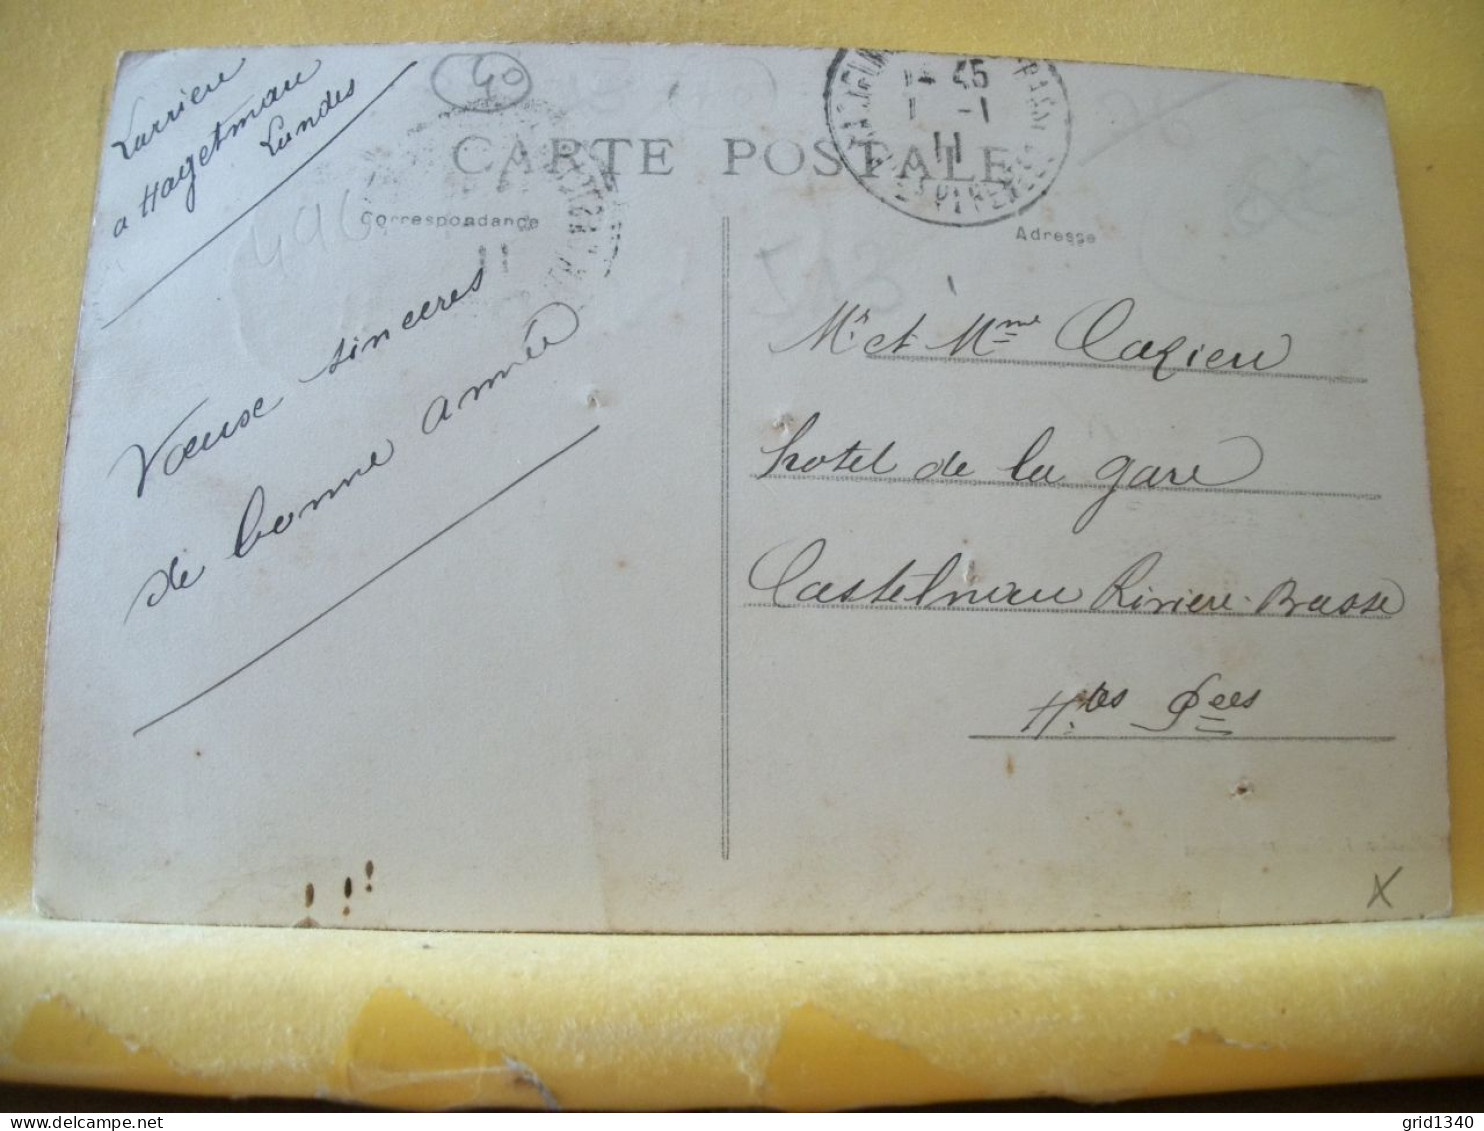 Larrieu
a Hagetmau
Landes
40
CARTE POSTALE
14 45
1 -1
11
496
Correspondance
11
Adresse
513
Vœuse sinceres
de bonne année
Mr et Mme Cazieu
hotel de la gare
Castelnau Riviere-Basse
Htes Pees
X
grid1340